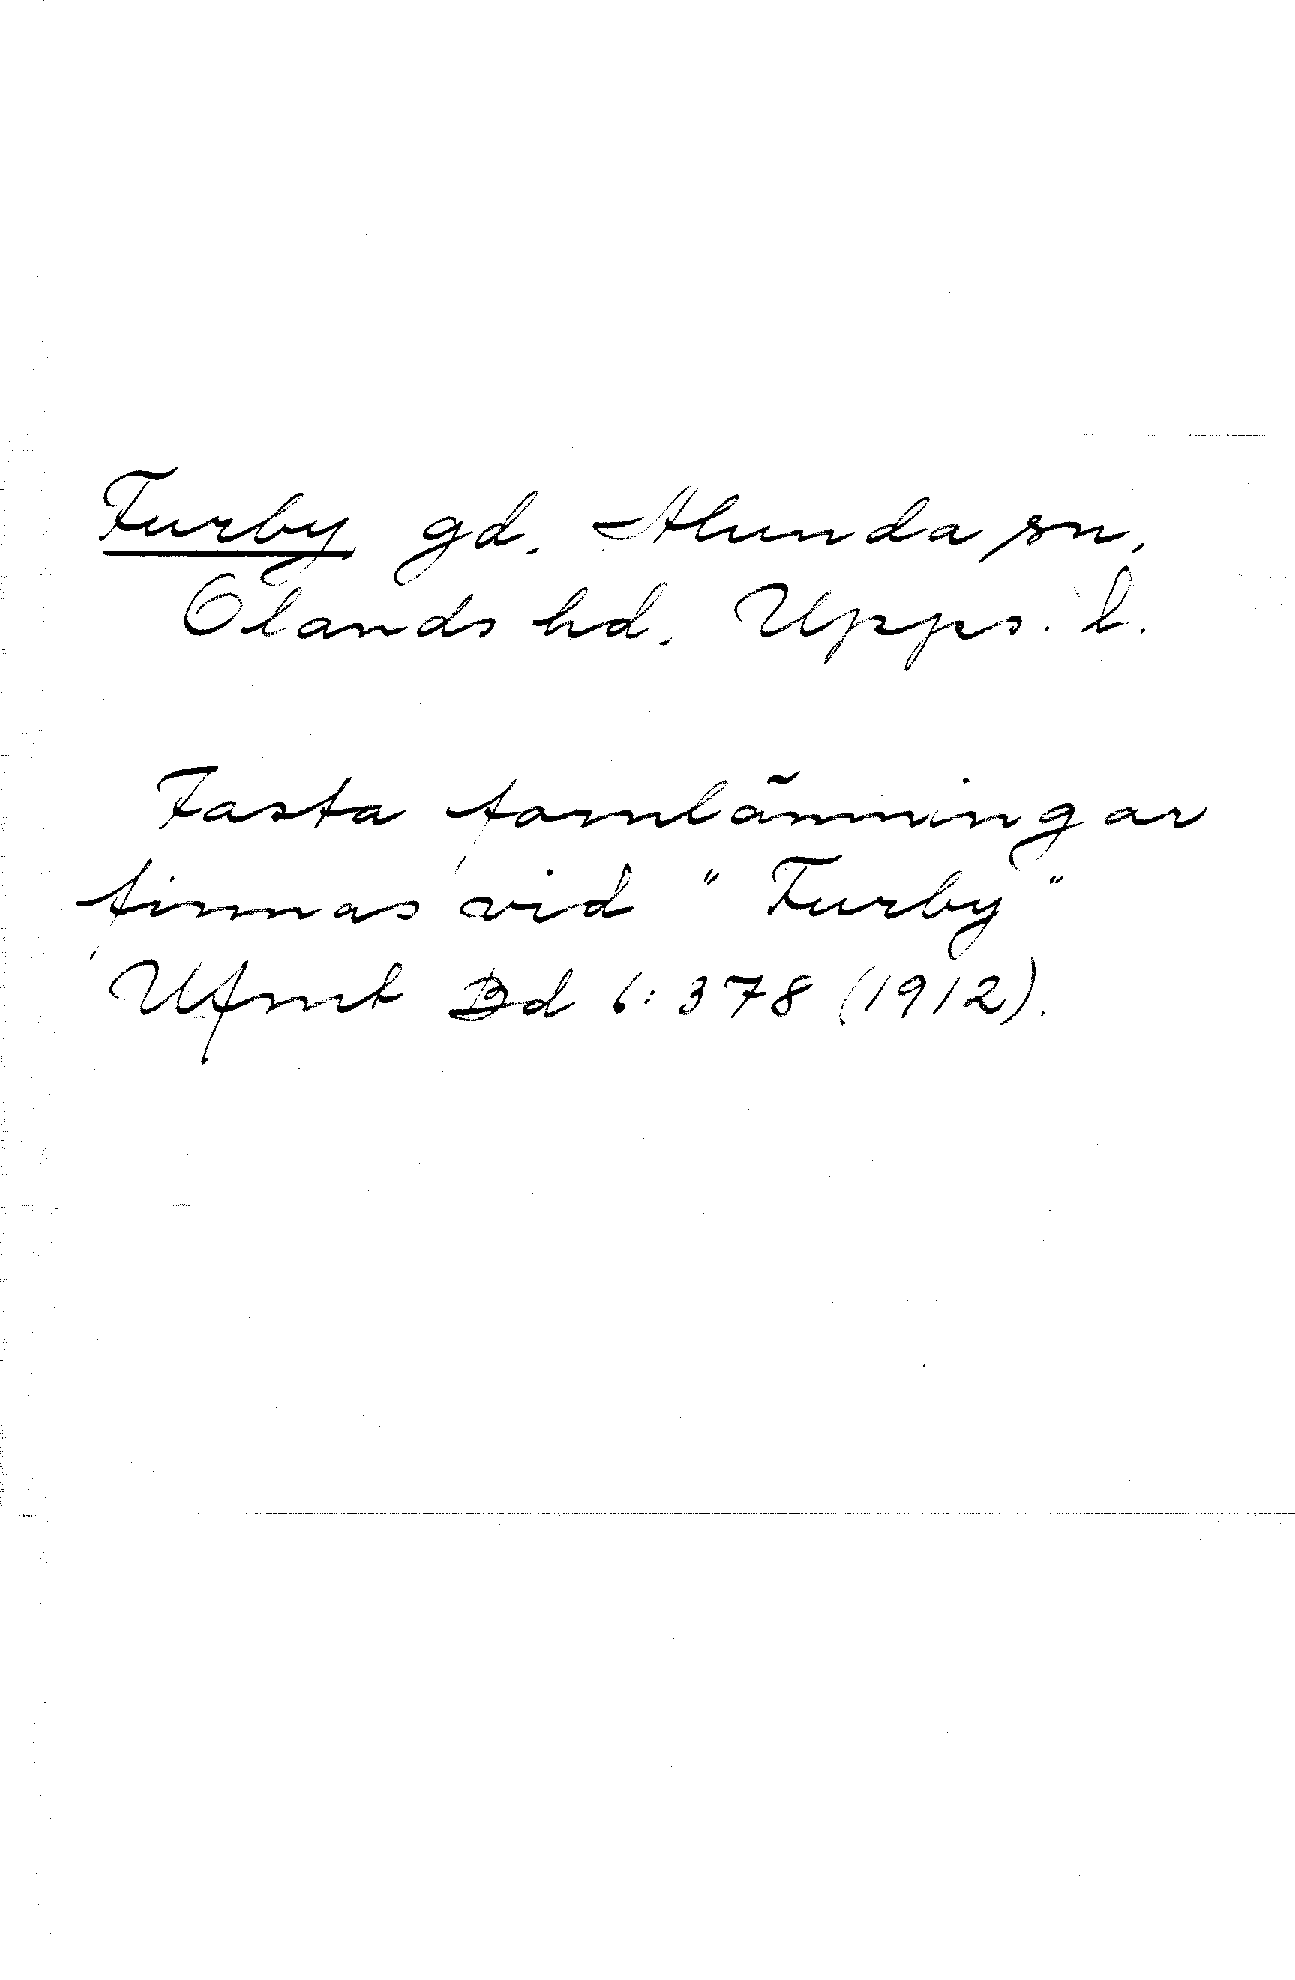 Furby gd. Alunda sn,
Olands hd. Upps. l.
Fasta fornlämningar
finnas vid "Furby"
Ufmt Bd 6:378 (1912).